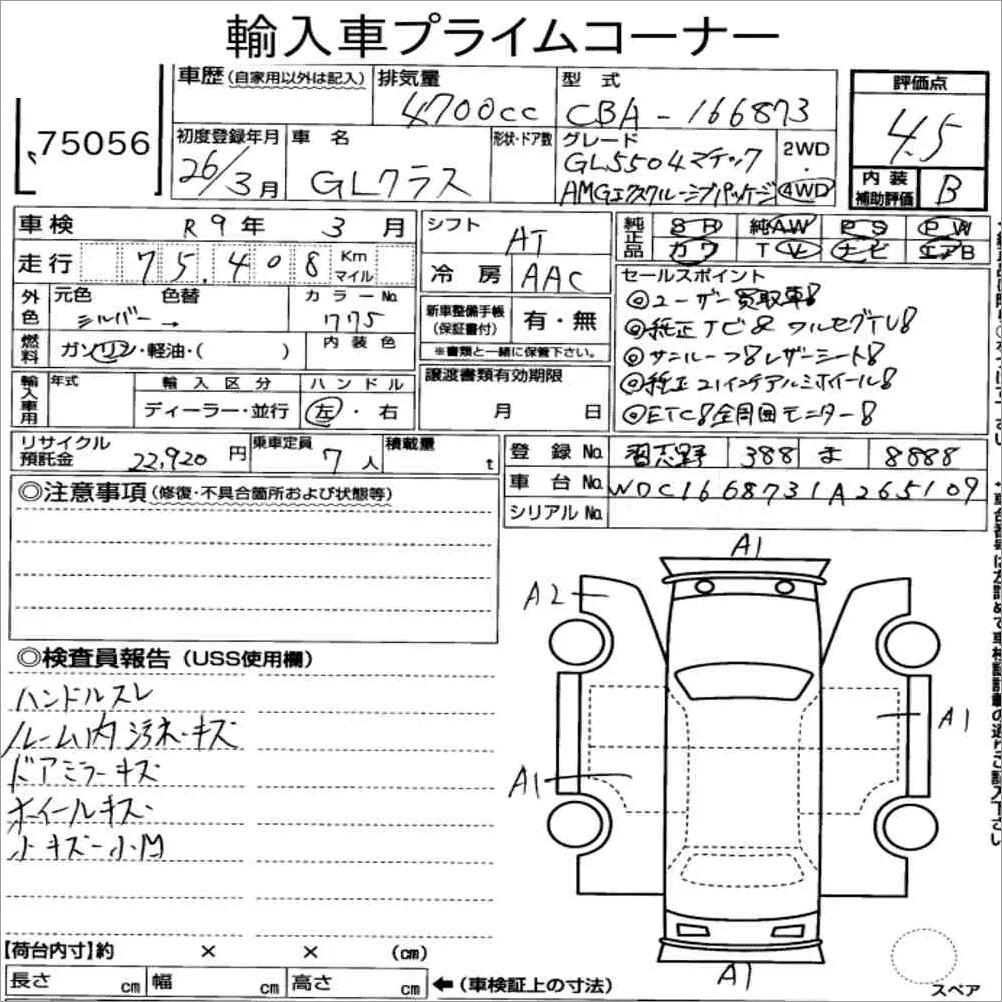 輸入車プライムコーナー
75056
車歴(自家用以外は記入)
排気量 4700cc
型式 CBA-166873
評価点 4.5
初度登録年月 26/3月
車名 GLクラス
形状・ドア数
グレード GL550 4マチック
AMGエクスクルーシブパッケージ
2WD・4WD
内装補助評価 B
車検 R9年 3月
走行 75.408 Km マイル
シフト AT
冷房 AAC
純正品 SR 純AW PS PW
カワ TV ナビ エアB
外色 元色 シルバー→ 色替
カラーNo. 775
燃料 ガソリン・軽油・( )
内装色
新車整備手帳(保証書付) 有・無
※書類と一緒に保管下さい。
セールスポイント
◎ユーザー買取車!
◎純正ナビ&フルセグTV!
◎サンルーフ!レザーシート!
◎純正21インチアルミホイール!
◎ETC!全周囲モニター!
輸入車用 年式
輸入区分 ディーラー・並行
ハンドル 左・右
譲渡書類有効期限 月 日
リサイクル預託金 22,920円
乗車定員 7人
積載量 t
登録No. 習志野 388 ま 8888
車台No. WDC1668731A265109
シリアルNo.
◎注意事項(修復・不具合箇所および状態等)
◎検査員報告(USS使用欄)
ハンドルスレ
ルーム内汚れ・キズ
ドアミラーキズ
ホイールキズ
小キズ・小凹
A1
A2
A1
A1
A1
スペア
【荷台内寸】約 × × (cm)
長さ cm 幅 cm 高さ cm ←(車検証上の寸法)